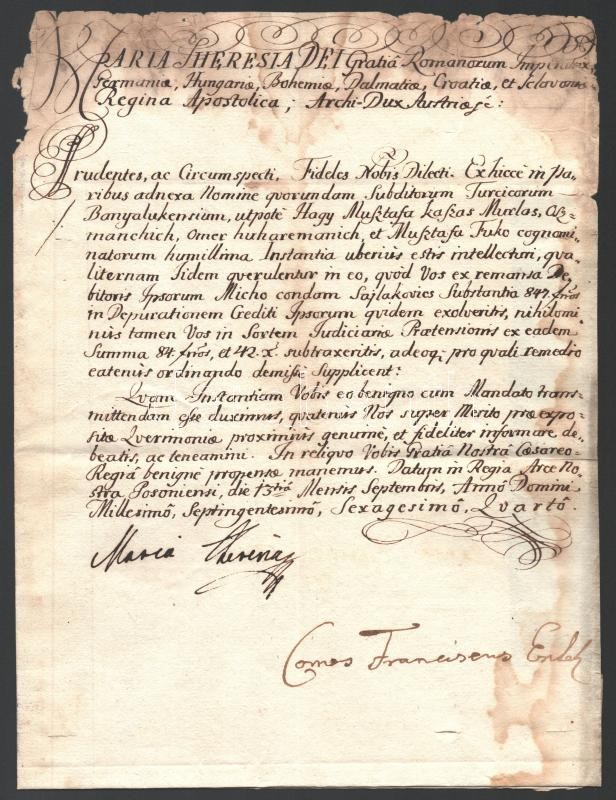 MARIA THERESIA DEI Gratiâ Romanorum Imperatrix
Germaniæ, Hungariæ, Bohemiæ, Dalmatiæ, Croatiæ, et Sclavoniæ
Regina Apostolica, Archi-Dux Austriæ &c:
Prudentes, ac Circumspecti, Fideles Nobis Dilecti. Ex hicce in pa,
ribus adnexa Nomine quorundam Subditorum Turcicorum
Banyalukensium, utpote Hagy Musztafa kaszas Murlas, Osz=
manchich, Omer huharemanich, et Musztafa Fuko cognomi,
natorum humillima Instantia uberius estis intellecturi, qua,
liternam Iidem querulentur in eo, quòd Vos ex remansa De,
bitoris Ipsorum Micho condam Sajlakovics Substantia 847. fnos
in Depurationem Crediti Ipsorum quidem exolveritis, nihilomi,
nus tamen Vos in Sortem Judiciariæ Prætensionis ex eadem
Summa 84. fnos, et 42. x. subtraxeritis, adeoq; pro quali remedio
eatenus ordinando demisse Supplicent:
Quam Instantiam Vobis eo benigno cum Mandato trans,
mittendam esse duximus, quatenus Nos super Merito præexpo,
sitæ Querimoniæ proximius genuine, et fideliter informare de,
beatis, ac teneamini. In reliquo Vobis Gratiâ Nostrâ Cæsareo-
Regiâ benigne propensæ manemus. Datum in Regia Arce No,
stra Posoniensi, die 13tiâ Mensis Septembris, Annô Domini
Millesimô, Septingentesimô, Sexagesimô, Quartô.
Maria Theresia
Comes Franciscus